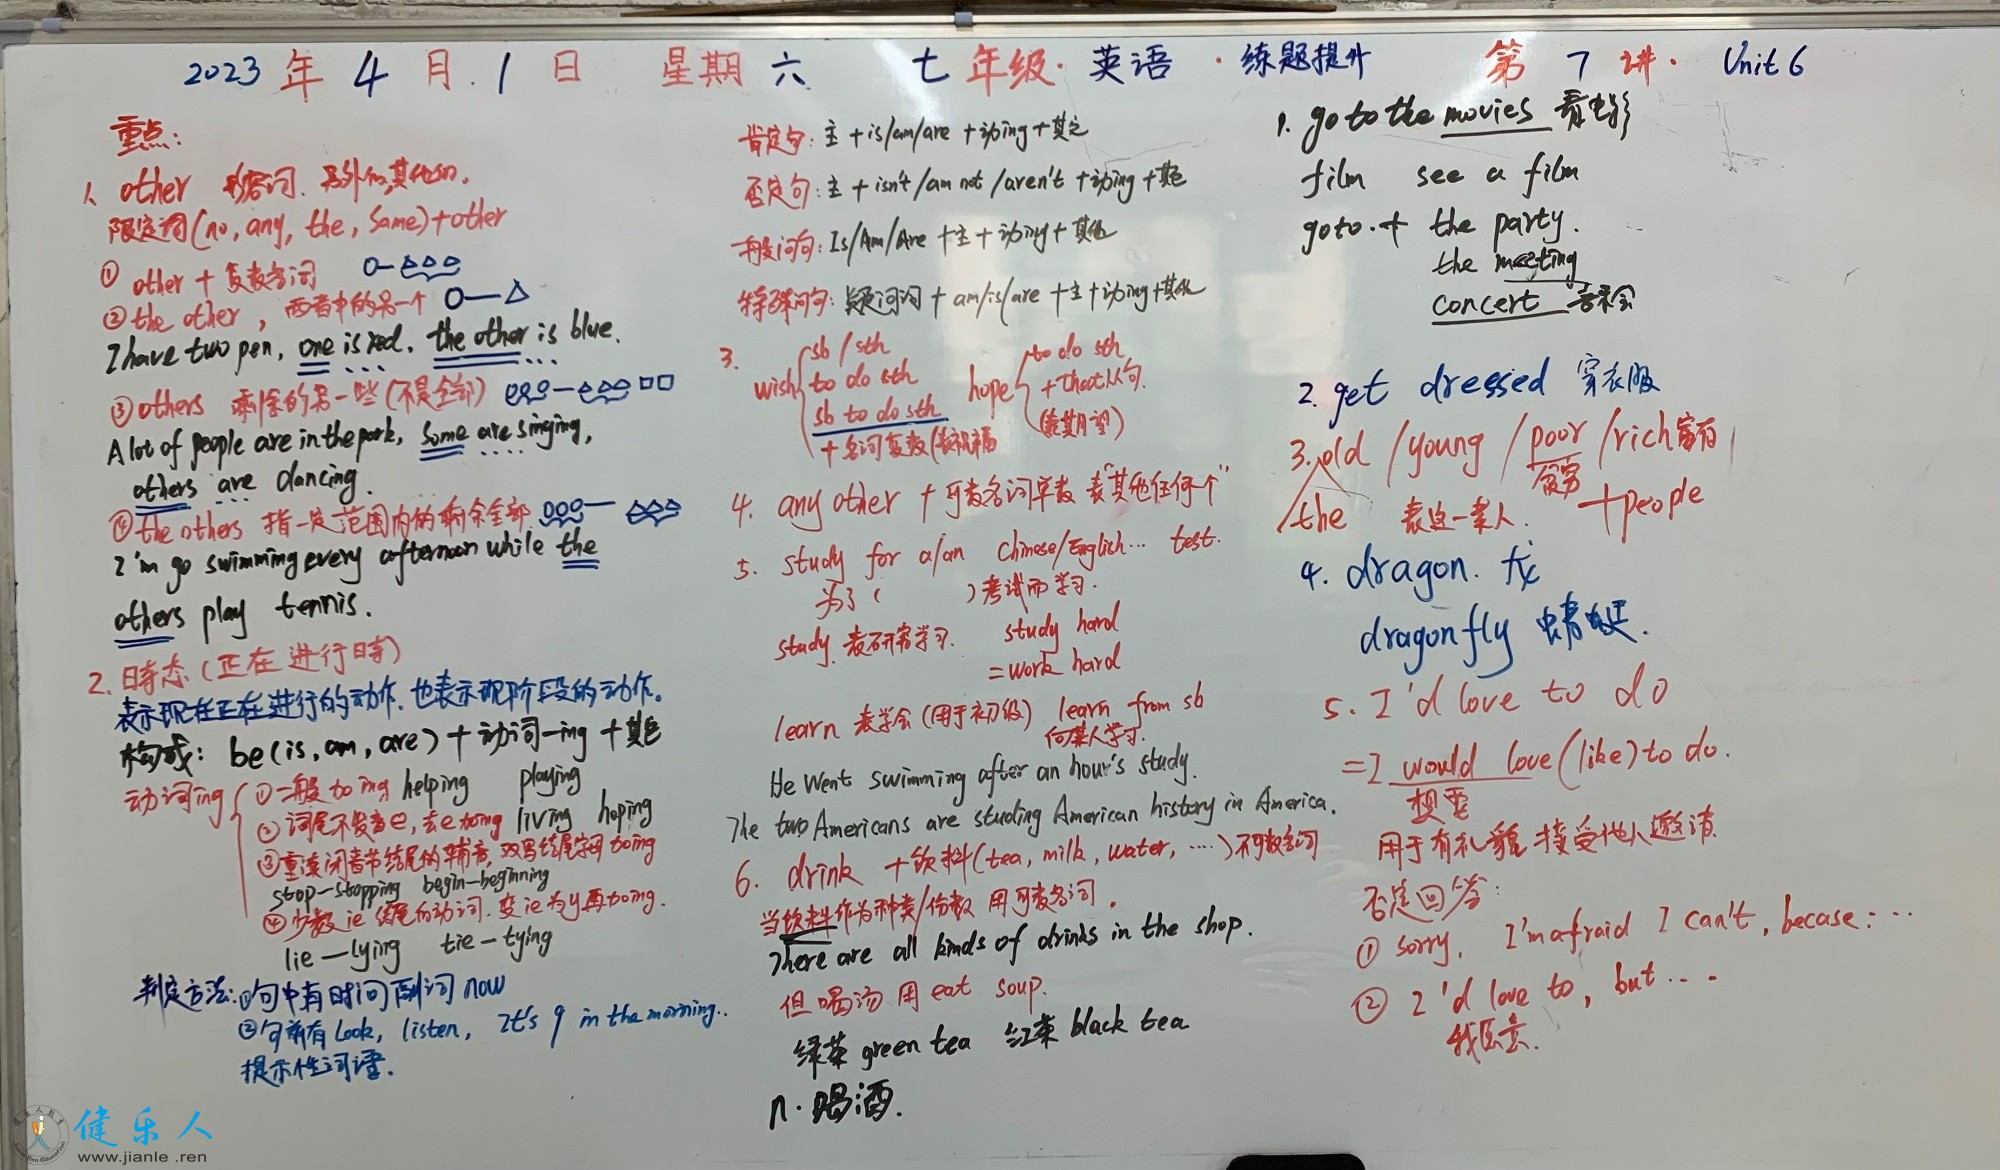 2023年4月.1日 星期六 七年级·英语·练题提升 第7讲· Unit 6
重点:
1、other 形容词. 另外的,其他的.
限定词(no, any, the, same)+other
① other + 复数名词
② the other, 两者中的另一个
I have two pen, one is red. the other is blue.
③ others 剩余的另一些(不是全部)
A lot of people are in the park, some are singing,
others are dancing.
④ the others 指一定范围内的剩余全部
I'm go swimming every afternoon while the
others play tennis.
2. 时态(正在进行时)
表示现在正在进行的动作.也表示现阶段的动作。
构成: be(is, am, are)+动词-ing+其它
动词ing
① 一般to ing helping playing
② 词尾不发音e,去e to ing living hoping
③ 重读闭音节结尾的辅音,双写结尾字母to ing
stop-stopping begin-beginning
④ 少数ie结尾的动词.变ie为y再to ing.
lie—lying tie-tying
判定方法:①句中有时间副词now
②句前有look, listen, It's 9 in the morning..
提示性词语.
肯定句: 主+is/am/are+动ing+其它
否定句: 主+isn't/am not/aren't+动ing+其它
一般问句: Is/Am/Are+主+动ing+其他
特殊问句: 疑问词+am/is/are+主+动ing+其他
3. wish
sb/sth
to do sth
sb to do sth
+名词复数(表祝福
hope
to do sth
+that从句.
(表期望)
4. any other + 可数名词单数 表"其他任何个"
5. study for a/an Chinese/English... test.
为了( )考试而学习.
study. 表研究学习. study hard
=work hard
learn 表学会(用于初级) learn from sb
向某人学习.
He went swimming after an hour's study.
The two Americans are studing American history in America.
6. drink +饮料(tea, milk, water, ....)不可数名词
当饮料作为种类/份数 用可数名词.
There are all kinds of drinks in the shop.
但喝汤用eat soup.
绿茶 green tea 红茶 black tea
n. 喝酒.
1. go to the movies 看电影
film see a film
go to.+ the party.
the meeting
concert 音乐会
2. get dressed 穿衣服
3. old/young/poor/rich富有
贫穷
the 表这一类人. +people
4. dragon. 龙
dragonfly 蜻蜓.
5. I'd love to do
=I would love(like) to do.
想要
用于有礼貌接受他人邀请.
否定回答:
① sorry, I'm afraid I can't, becase: ...
② I'd love to, but ....
我愿意.
健乐人
www.jianle.ren